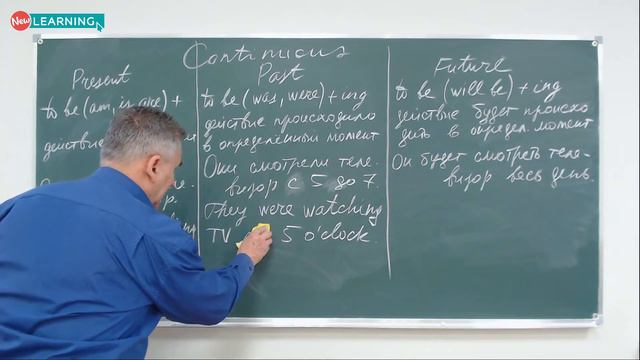 New LEARNING
Continuous
Present
to be (am, is, are) +
действ
Past
to be (was, were) + ing
действие происходило
в определённый момент
Они смотрели теле-
визор с 5 до 7.
They were watching
TV 5 o'clock
Future
to be (will be) + ing
действие будет происхо
дить в определ. момент
Он будет смотреть теле-
визор весь день.